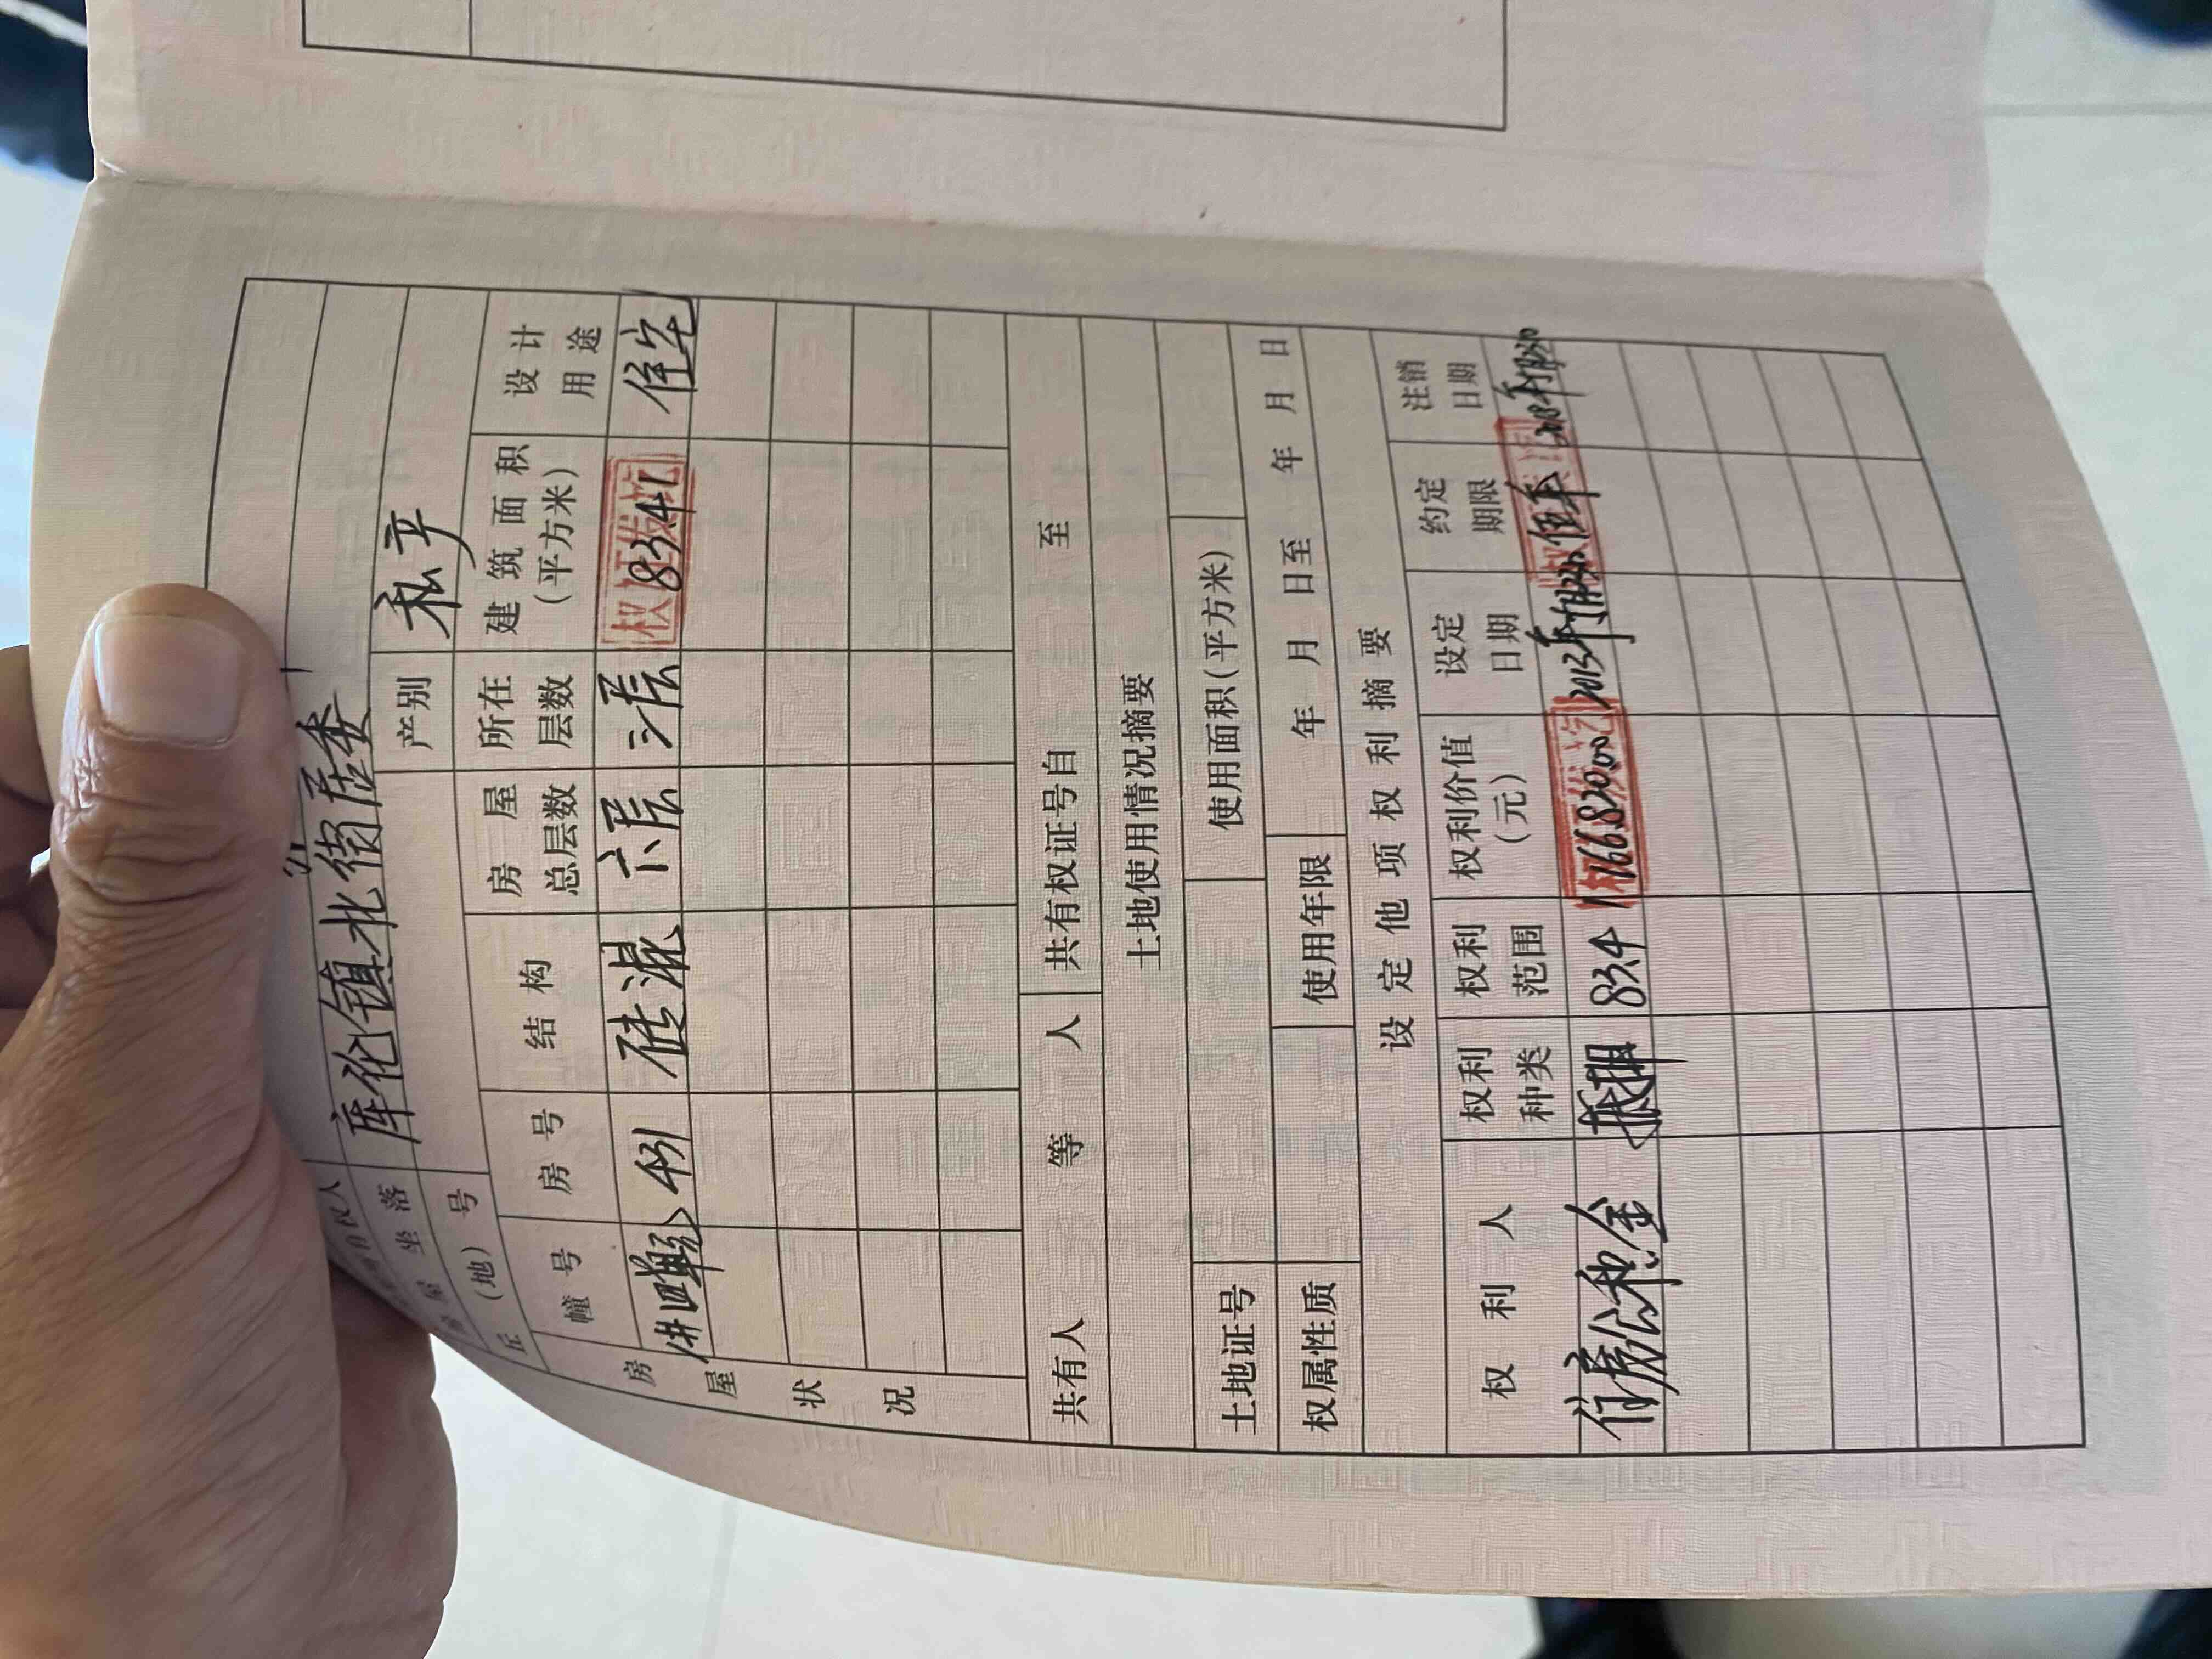 有权人
房屋坐落 库伦镇北街居委
丘(地)号 产别 私产
房屋状况
幢号 房号 结构 房屋总层数 所在层数 建筑面积(平方米) 设计用途
431 砖混 六层 三层 83.4 住宅
共有人 等 人 共有权证号自 至
土地使用情况摘要
土地证号 使用面积(平方米)
权属性质 使用年限 年 月 日至 年 月 日
设定他项权利摘要
权利人 权利种类 权利范围 权利价值(元) 设定日期 约定期限 注销日期
住房公积金 抵押 83.4 166820.00 2013年 伍年 2018年